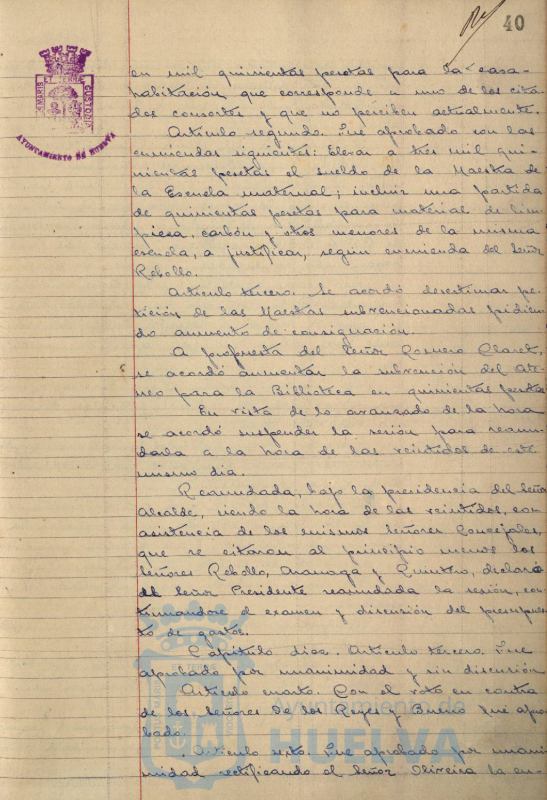 40
PORTUS MARIS ET TERRE CUSTODIA
AYUNTAMIENTO DE HUELVA
en mil quinientas pesetas para la casa-
habitación que corresponde a uno de los cita
dos consortes y que no perciben actualmente.
Artículo segundo. Fue aprobado con las
enmiendas siguientes: Elevar a tres mil qui-
nientas pesetas el sueldo de la Maestra de
la Escuela maternal; incluir una partida
de quinientas pesetas para material de lim-
pieza, carbón y otros menores de la misma
escuela, a justificar, según enmienda del Señor
Rebollo.
Artículo tercero. Se acordó desestimar pe-
tición de las Maestras subvencionadas pidien-
do aumento de consignación.
A propuesta del Señor Claret,
se acordó aumentar la subvención del Ate-
neo para la Biblioteca en quinientas pesetas
En vista de lo avanzado de la hora
se acordó suspender la sesión para reanu-
darla a la hora de las veintidos de este
mismo dia.
Reanudada, bajo la presidencia del Señor
Alcalde, siendo la hora de las veintidos, con
asistencia de los mismos Señores Concejales,
que se citaron al principio menos los
Señores Rebollo, y Quintero, declaró
el Señor Presidente reanudada la sesión, con-
tinuandose el examen y discusión del presupues-
to de gastos.
Capítulo diez. Artículo tercero. Fue
aprobado por unanimidad y sin discusión
Artículo cuarto. Con el voto en contra
de los Señores de los Reyes y Bueno fué apro-
bado.
Artículo sexto. Fue aprobado por unani-
midad rectificando el Señor Oliveira la en-
Ayuntamiento de
HUELVA